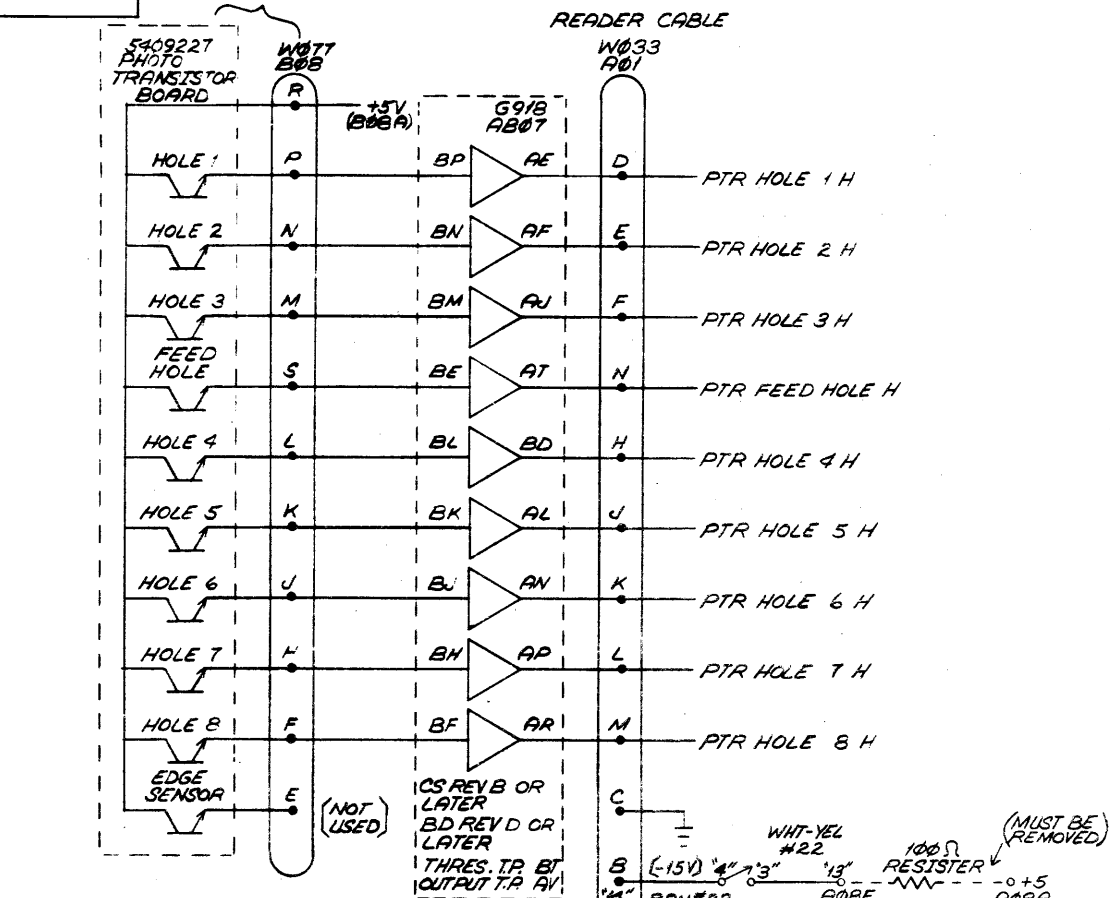 READER CABLE
5409227
PHOTO
TRANSISTOR
BOARD
WØ77
BØ8
WØ33
AØ1
R
+5V
(BØ8A)
G918
ABØ7
HOLE 1
P
BP
AE
D
PTR HOLE 1 H
HOLE 2
N
BN
AF
E
PTR HOLE 2 H
HOLE 3
M
BM
AJ
F
PTR HOLE 3 H
FEED
HOLE
S
BE
AT
N
PTR FEED HOLE H
HOLE 4
L
BL
BD
H
PTR HOLE 4 H
HOLE 5
K
BK
AL
J
PTR HOLE 5 H
HOLE 6
J
BJ
AN
K
PTR HOLE 6 H
HOLE 7
H
BH
AP
L
PTR HOLE 7 H
HOLE 8
F
BF
AR
M
PTR HOLE 8 H
EDGE
SENSOR
E
(NOT
USED)
CS REV B OR
LATER
BD REV D OR
LATER
THRES. T.P. BT
OUTPUT T.P. AV
C
B
(-15V)
"4"
"3"
WHT-YEL
#22
"13"
100Ω
RESISTER
(MUST BE
REMOVED)
+5